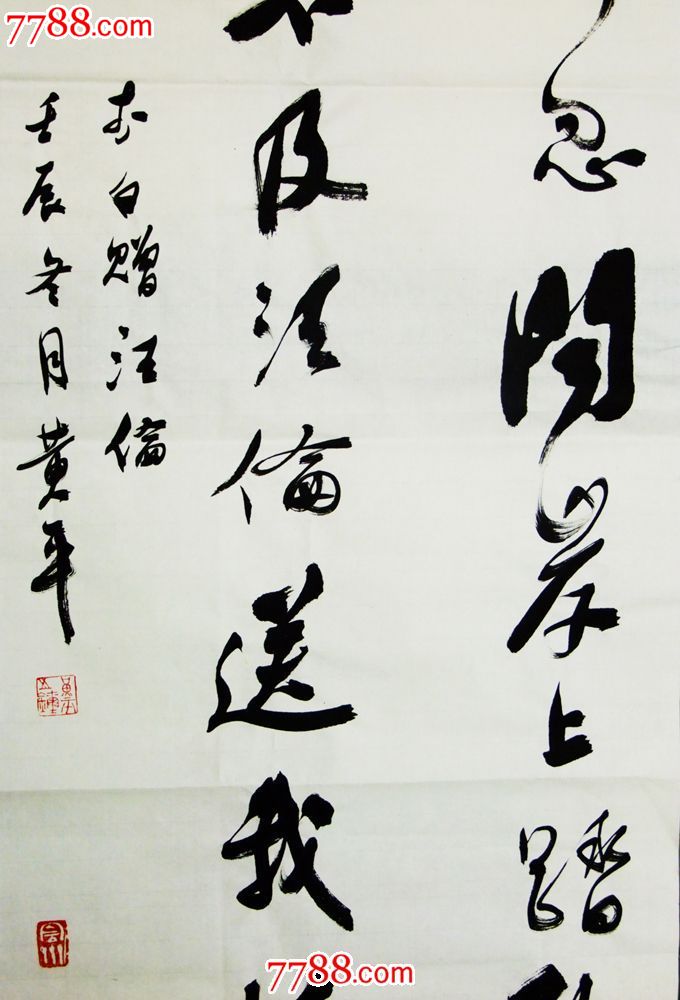 7788.com
忽闻岸上踏
不及汪倫送我
李白赠汪倫
壬辰冬月黄平
7788.com